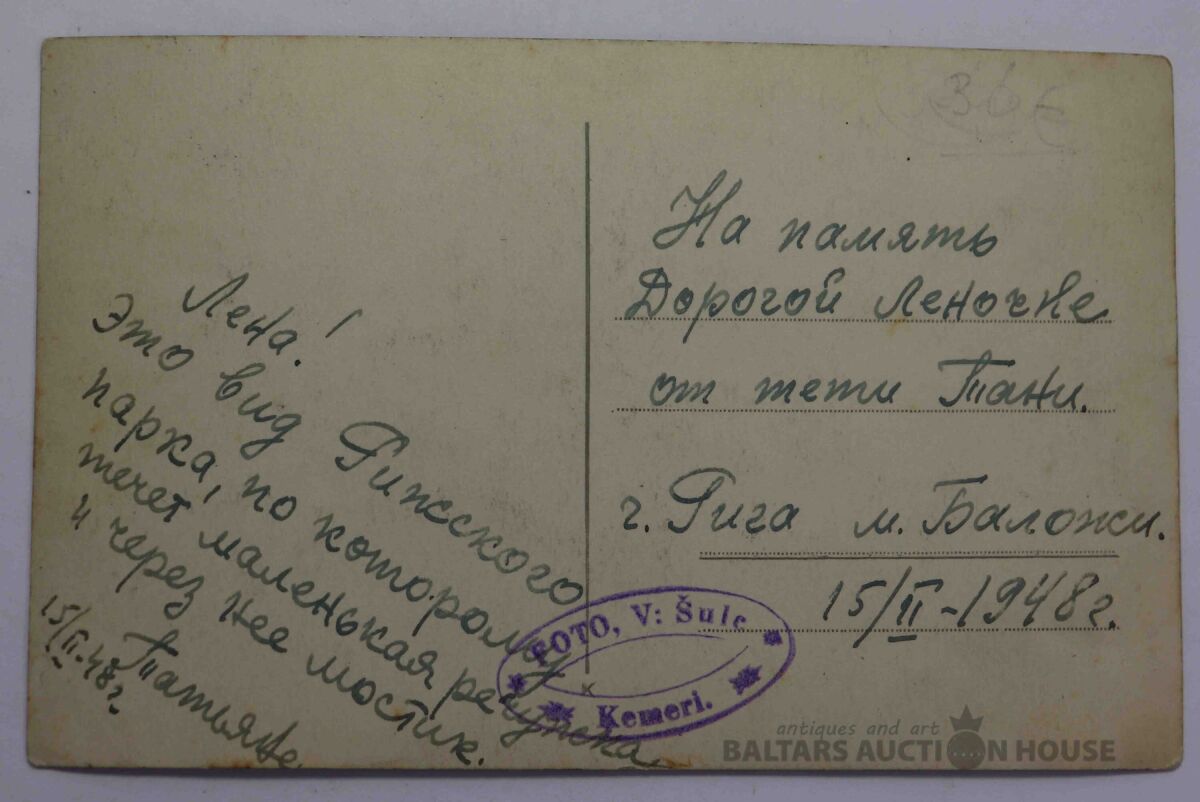 Лена!
Это вид Рижского
парка, по которому
течет маленькая речушка
и через нее мостик.
Татьяна
15/II-48г.
36€
На память
Дорогой Леночке
от тети Тани.
г. Рига м. Баложи.
15/II-1948г.
FOTO, V: Šulc
Kemeri.
antiques and art
BALTARS AUCTION HOUSE